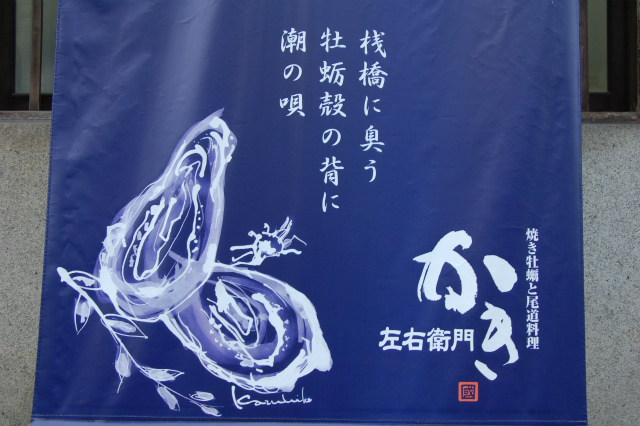 桟橋に臭う
牡蛎殻の背に
潮の唄
焼き牡蠣と尾道料理
かき
左右衛門
Kazuhiko